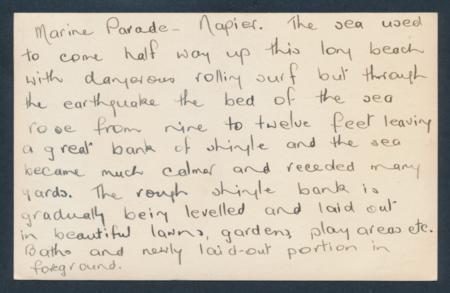 Marine Parade - Napier. The sea used
to come half way up this long beach
with dangerous rolling surf but through
the earthquake the bed of the sea
rose from nine to twelve feet leaving
a great bank of shingle and the sea
became much calmer and receded many
yards. The rough shingle bank is
gradually being levelled and laid out
in beautiful lawns, gardens, play areas etc.
Baths and newly laid-out portion in
foreground.